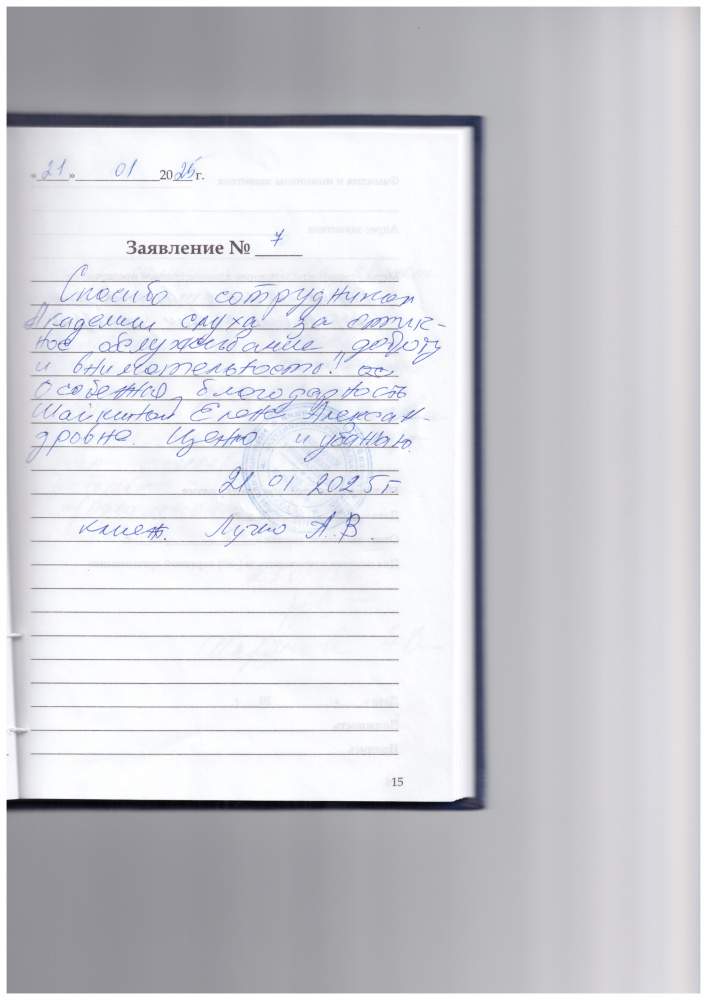 «21» 01 2025 г.
Заявление № 7
Спасибо сотрудникам
Академии слуха за отлич-
ное обслуживание доброту
и внимательность!!
Особенно благодарность
Шайкиной Елене Алексан-
дровне. Ценю и уважаю.
21. 01. 2025 г.
клиент. Лучко А. В.
15